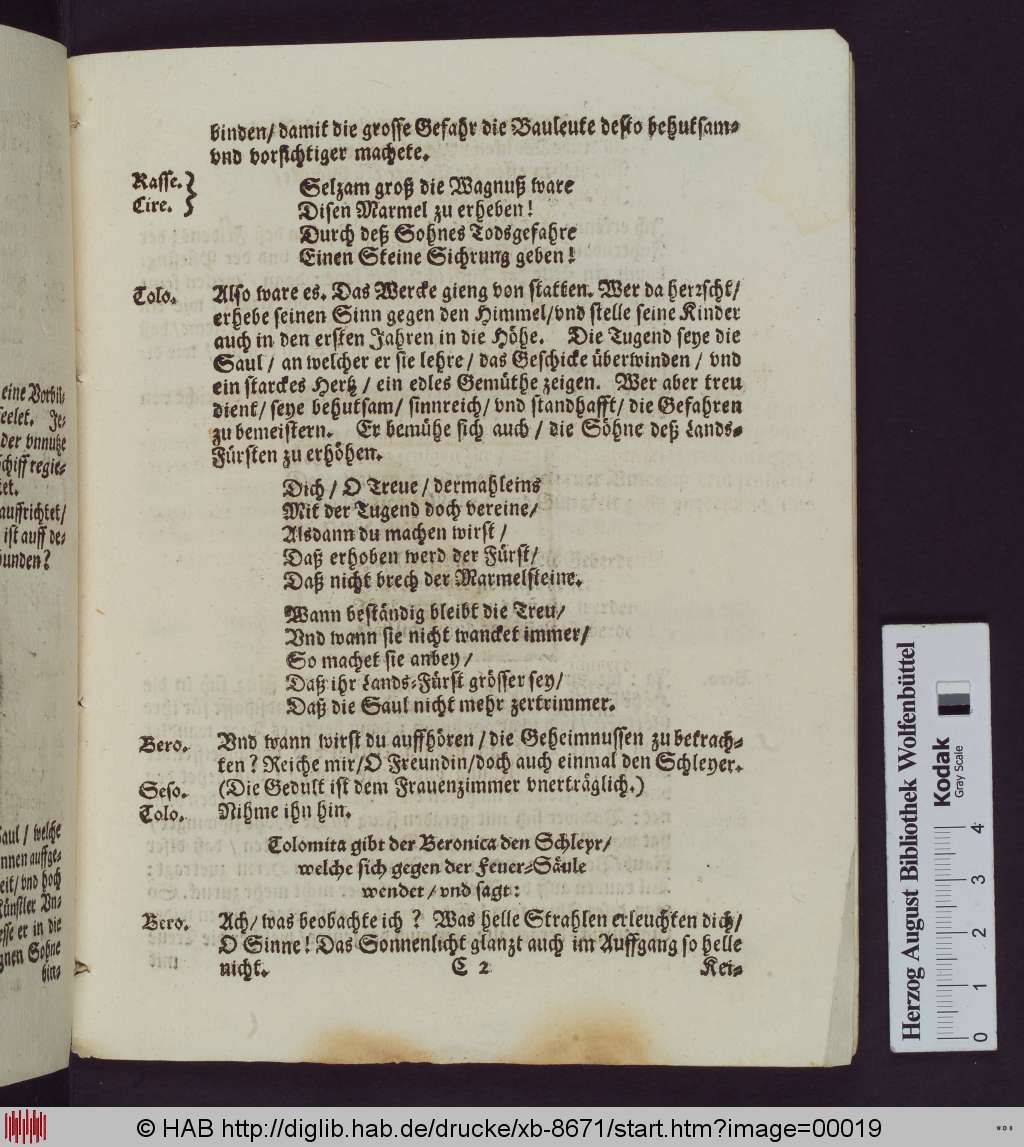 eine Vorbil-
seelet. Je-
der vnnutze
schiff regie-
tet.
auffrichtet/
ist auff de-
bunden?
Saul / welche
nnen auffge-
eit/ vnd hoch
Künstler Vn-
esse er in die
gnen Sohne
bin-
binden/ damit die grosse Gefahr die Bauleute desto behutsam-
vnd vorsichtiger machete.
Rasse. }
Cire. }
Selzam groß die Wagnuß ware
Disen Marmel zu erheben!
Durch deß Sohnes Todsgefahre
Einen Steine Sichrung geben!
Tolo. Also ware es. Das Wercke gieng von statten. Wer da herrscht/
erhebe seinen Sinn gegen den Himmel/vnd stelle seine Kinder
auch in den ersten Jahren in die Höhe. Die Tugend seye die
Saul / an welcher er sie lehre / das Geschicke überwinden / vnd
ein starckes Hertz / ein edles Gemüthe zeigen. Wer aber treu
dient/ seye behutsam/ sinnreich/ vnd standhafft/ die Gefahren
zu bemeistern. Er bemühe sich auch / die Söhne deß Lands-
Fürsten zu erhöhen.
Dich / O Treue / dermahleins
Mit der Tugend doch vereine/
Alsdann du machen wirst /
Daß erhoben werd der Fürst/
Daß nicht brech der Marmelsteine.
Wann beständig bleibt die Treu/
Vnd wann sie nicht wancket immer/
So machet sie anbey /
Daß ihr Lands-Fürst grösser sey/
Daß die Saul nicht mehr zertrimmer.
Bero. Vnd wann wirst du auffhören / die Geheimnussen zu betrach-
ten? Reiche mir/O Freundin/doch auch einmal den Schleyer.
Seso. (Die Gedult ist dem Frauenzimmer vnerträglich.)
Tolo. Nihme ihn hin.
Tolomita gibt der Beronica den Schleyr/
welche sich gegen der Feuer-Säule
wendet/ vnd sagt:
Bero. Ach/ was beobachte ich? Was helle Strahlen erleuchten dich/
O Sinne! Das Sonnenlicht glanzt auch im Auffgang so helle
nicht. C 2 Kei-
Herzog August Bibliothek Wolfenbüttel
Kodak
Gray Scale
0 1 2 3 4
© HAB http://diglib.hab.de/drucke/xb-8671/start.htm?image=00019